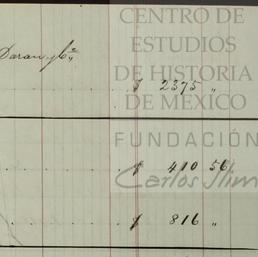 CENTRO DE
ESTUDIOS
Daran y Cª
DE HISTORIA
$ 2375 "
DE MÉXICO
FUNDACIÓN
$ 410 56
Carlos Slim
$ 816 "